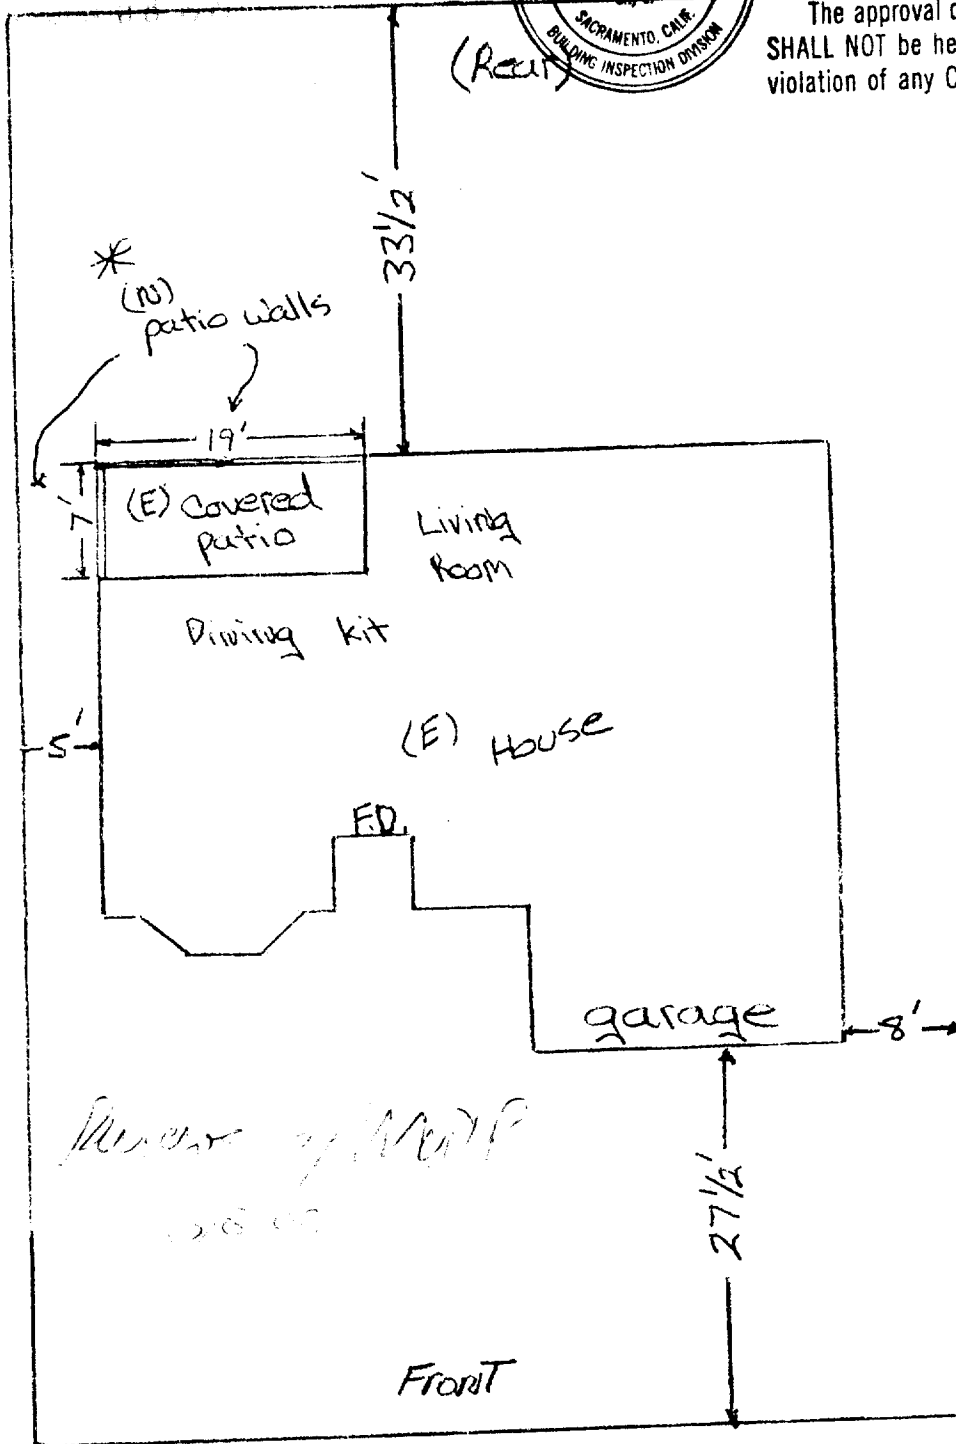 SACRAMENTO, CALIF.
BUILDING INSPECTION DIVISION
The approval
SHALL NOT be he
violation of any C
(Rear)
33 1/2'
*
(N)
patio walls
19'
7'
(E) Covered
patio
Living
Room
Dining kit
(E) House
5'
F.D.
garage
8'
27 1/2'
Front